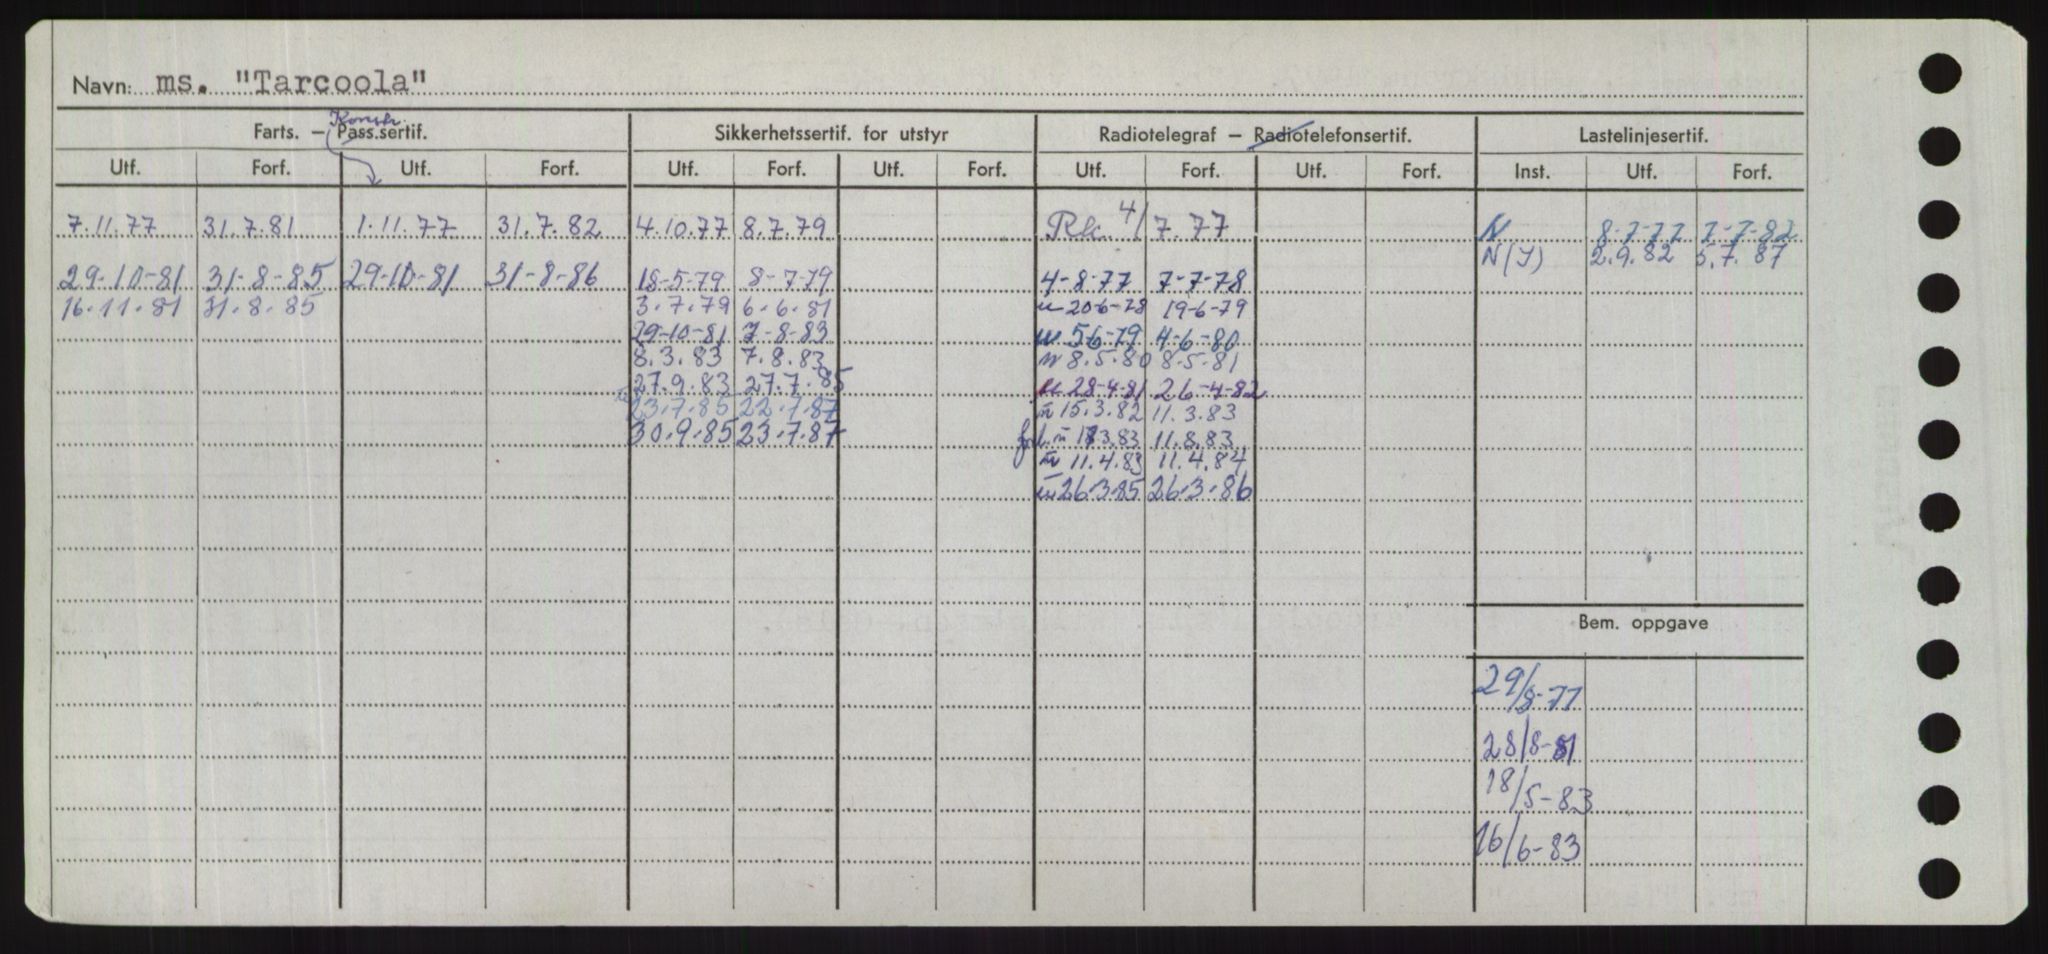 Navn: ms. "Tarcoola"
Konstr.
Farts. – Pass.sertif. Sikkerhetssertif. for utstyr Radiotelegraf – Radiotelefonsertif. Lastelinjesertif.
Utf. Forf. Utf. Forf. Utf. Forf. Utf. Forf. Utf. Forf. Utf. Forf. Inst. Utf. Forf.
7.11.77 31.7.81 1.11.77 31.7.82 4.10.77 8.7.79 4/7.77 N 8-7-77 7-7-82
N(I) 2.9.82 5.7.87
29-10-81 31-8-85 29-10-81 31-8-86 18-5-79 8-7-79 4-8-77 7-7-78
16.11.81 31.8.85 3.7.79 6.6.81 20-6-78 19-6-79
29-10-81 7-8-83 5-6-79 4-6-80
8.3.83 7.8.83 8.5.80 8-5-81
27.9.83 27.7.85 28-4-81 26-4-82
23.7.85 22.7.87 15.3.82 11.3.83
30.9.85 23.7.87 3.83 11.8.83
11.4.83 11.4.84
26.3.85 26.3.86
Bem. oppgave
29/8-77
28/8-81
18/5-83
16/6-83